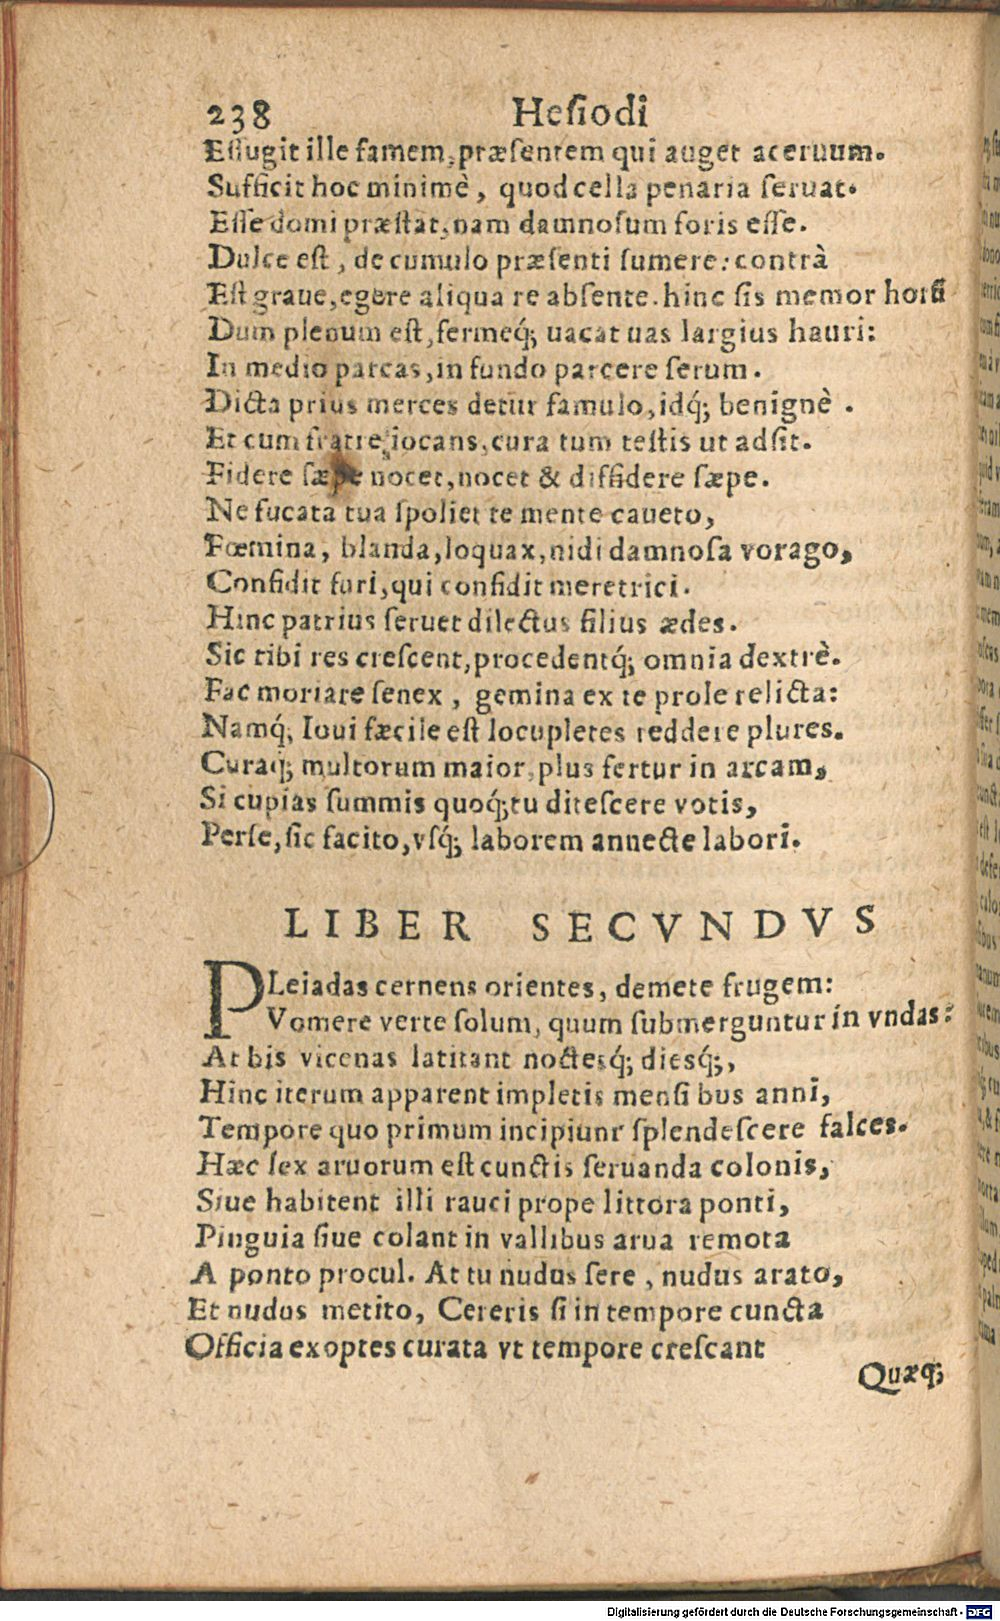 238 Heſiodi
Effugit ille famem, præſentem qui auget aceruum.
Sufficit hoc minimè, quod cella penaria ſeruat.
Eſſe domi præſtat, nam damnoſum foris eſſe.
Dulce eſt, de cumulo præſenti ſumere: contrà
Eſt graue, egere aliqua re abſente. hinc ſis memor horũ
Dum plenum eſt, fermeq́; uacat uas largius hauri:
In medio parcas, in fundo parcere ſerum.
Dicta prius merces detur famulo, idq́; benignè.
Et cum fratre iocans, cura tum teſtis ut adſit.
Fidere ſæpe nocet, nocet & diffidere ſæpe.
Ne fucata tua ſpoliet te mente caueto,
Fœmina, blanda, loquax, nidi damnoſa vorago,
Confidit furi, qui confidit meretrici.
Hinc patrius ſeruet dilectus filius ædes.
Sic tibi res creſcent, procedentq́; omnia dextrè.
Fac moriare ſenex, gemina ex te prole relicta:
Namq́; Ioui fæcile eſt locupletes reddere plures.
Curaq́; multorum maior, plus fertur in arcam,
Si cupias ſummis quoq́; tu diteſcere votis,
Perſe, ſic facito, vſq́; laborem annecte labori.
LIBER SECVNDVS
PLeiadas cernens orientes, demete frugem:
Vomere verte ſolum, quum ſubmerguntur in vndas:
At bis vicenas latitant noctesq́; diesq́;,
Hinc iterum apparent impletis menſibus anni,
Tempore quo primum incipiunt ſplendeſcere falces.
Hæc lex aruorum eſt cunctis ſeruanda colonis,
Siue habitent illi rauci prope littora ponti,
Pinguia ſiue colant in vallibus arua remota
A ponto procul. At tu nudus ſere, nudus arato,
Et nudus metito, Cereris ſi in tempore cuncta
Officia exoptes curata vt tempore creſcant
Quæq́;
Digitalisierung gefördert durch die Deutsche Forschungsgemeinschaft - DFG